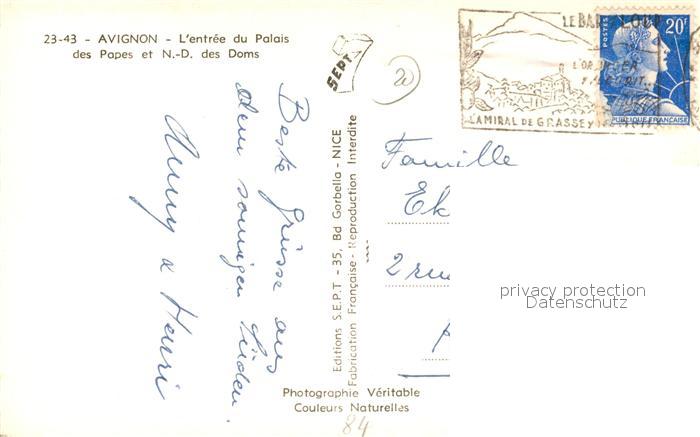 23-43 - AVIGNON - L'entrée du Palais
des Papes et N.-D. des Doms
SEPT
20
LE BAR s/ LOUP
L'AMIRAL DE GRASSE Y
POSTES
20F
RÉPUBLIQUE FRANÇAISE
Beste Grüsse aus
dem sonnigen Süden.
Anny & Henri
Editions S.E.P.T - 35, Bd Gorbella - NICE
Fabrication Française - Reproduction Interdite
Famille
Ek
2 rue
privacy protection
Datenschutz
Photographie Véritable
Couleurs Naturelles
84